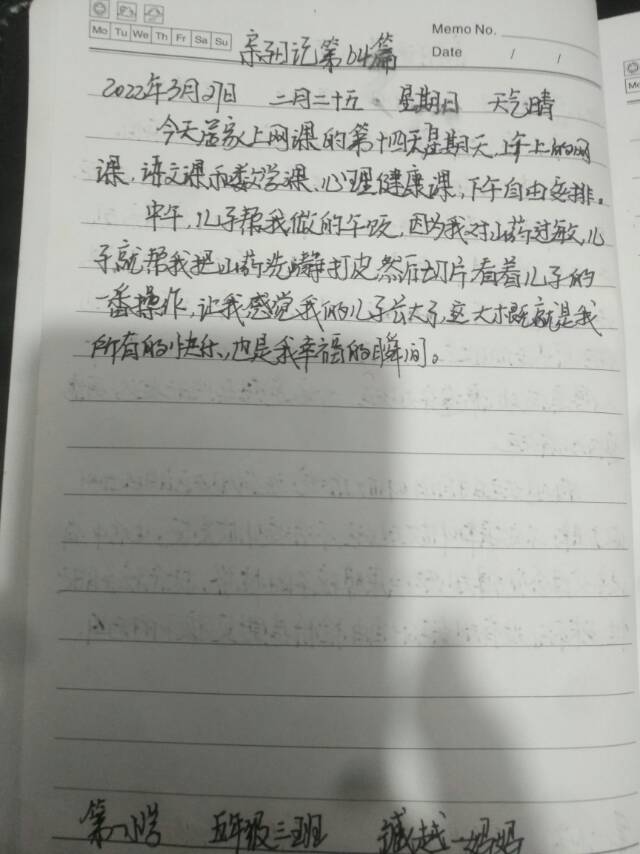 Memo No.
Mo Tu We Th Fr Sa Su
Date / /
亲子日记第64篇
2022年3月27日 二月二十五 星期日 天气晴
今天居家上网课的第十四天星期天,上午上的网
课,语文课和数学课、心理健康课,下午自由安排。
中午,儿子帮我做的午饭,因为我对山药过敏,儿
子就帮我把山药洗干静打皮然后切片看着儿子的
一番操作,让我感觉我的儿子长大了,这大概就是我
所有的快乐,也是我幸福的瞬间。
第八小学 五年级三班 越一妈妈